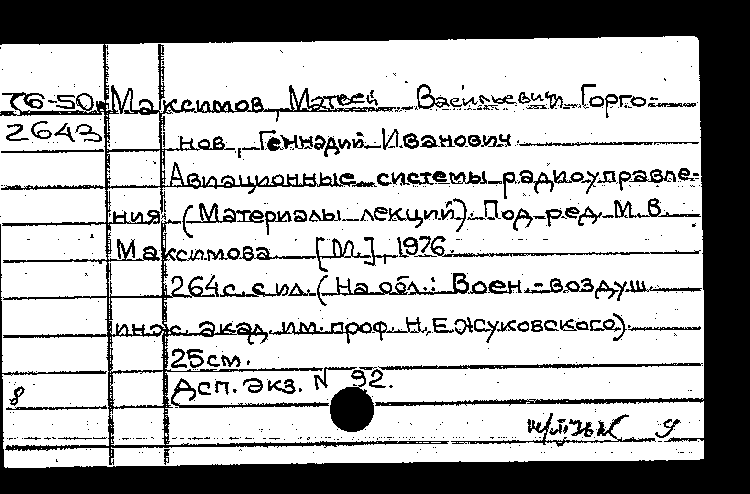 76-50 Максимов, Матвей Васильевич Горго-
2643 нов, Геннадий Иванович.
Авиационные системы радиоуправле-
ния. (Материалы лекций). Под ред. М. В.
Максимова [М.], 1976.
264с. с ил. (На обл.: Воен.-воздуш.
инж. акад. им. проф. Н.Е.Жуковского).
25см.
8 Дсп. Экз. N 92.